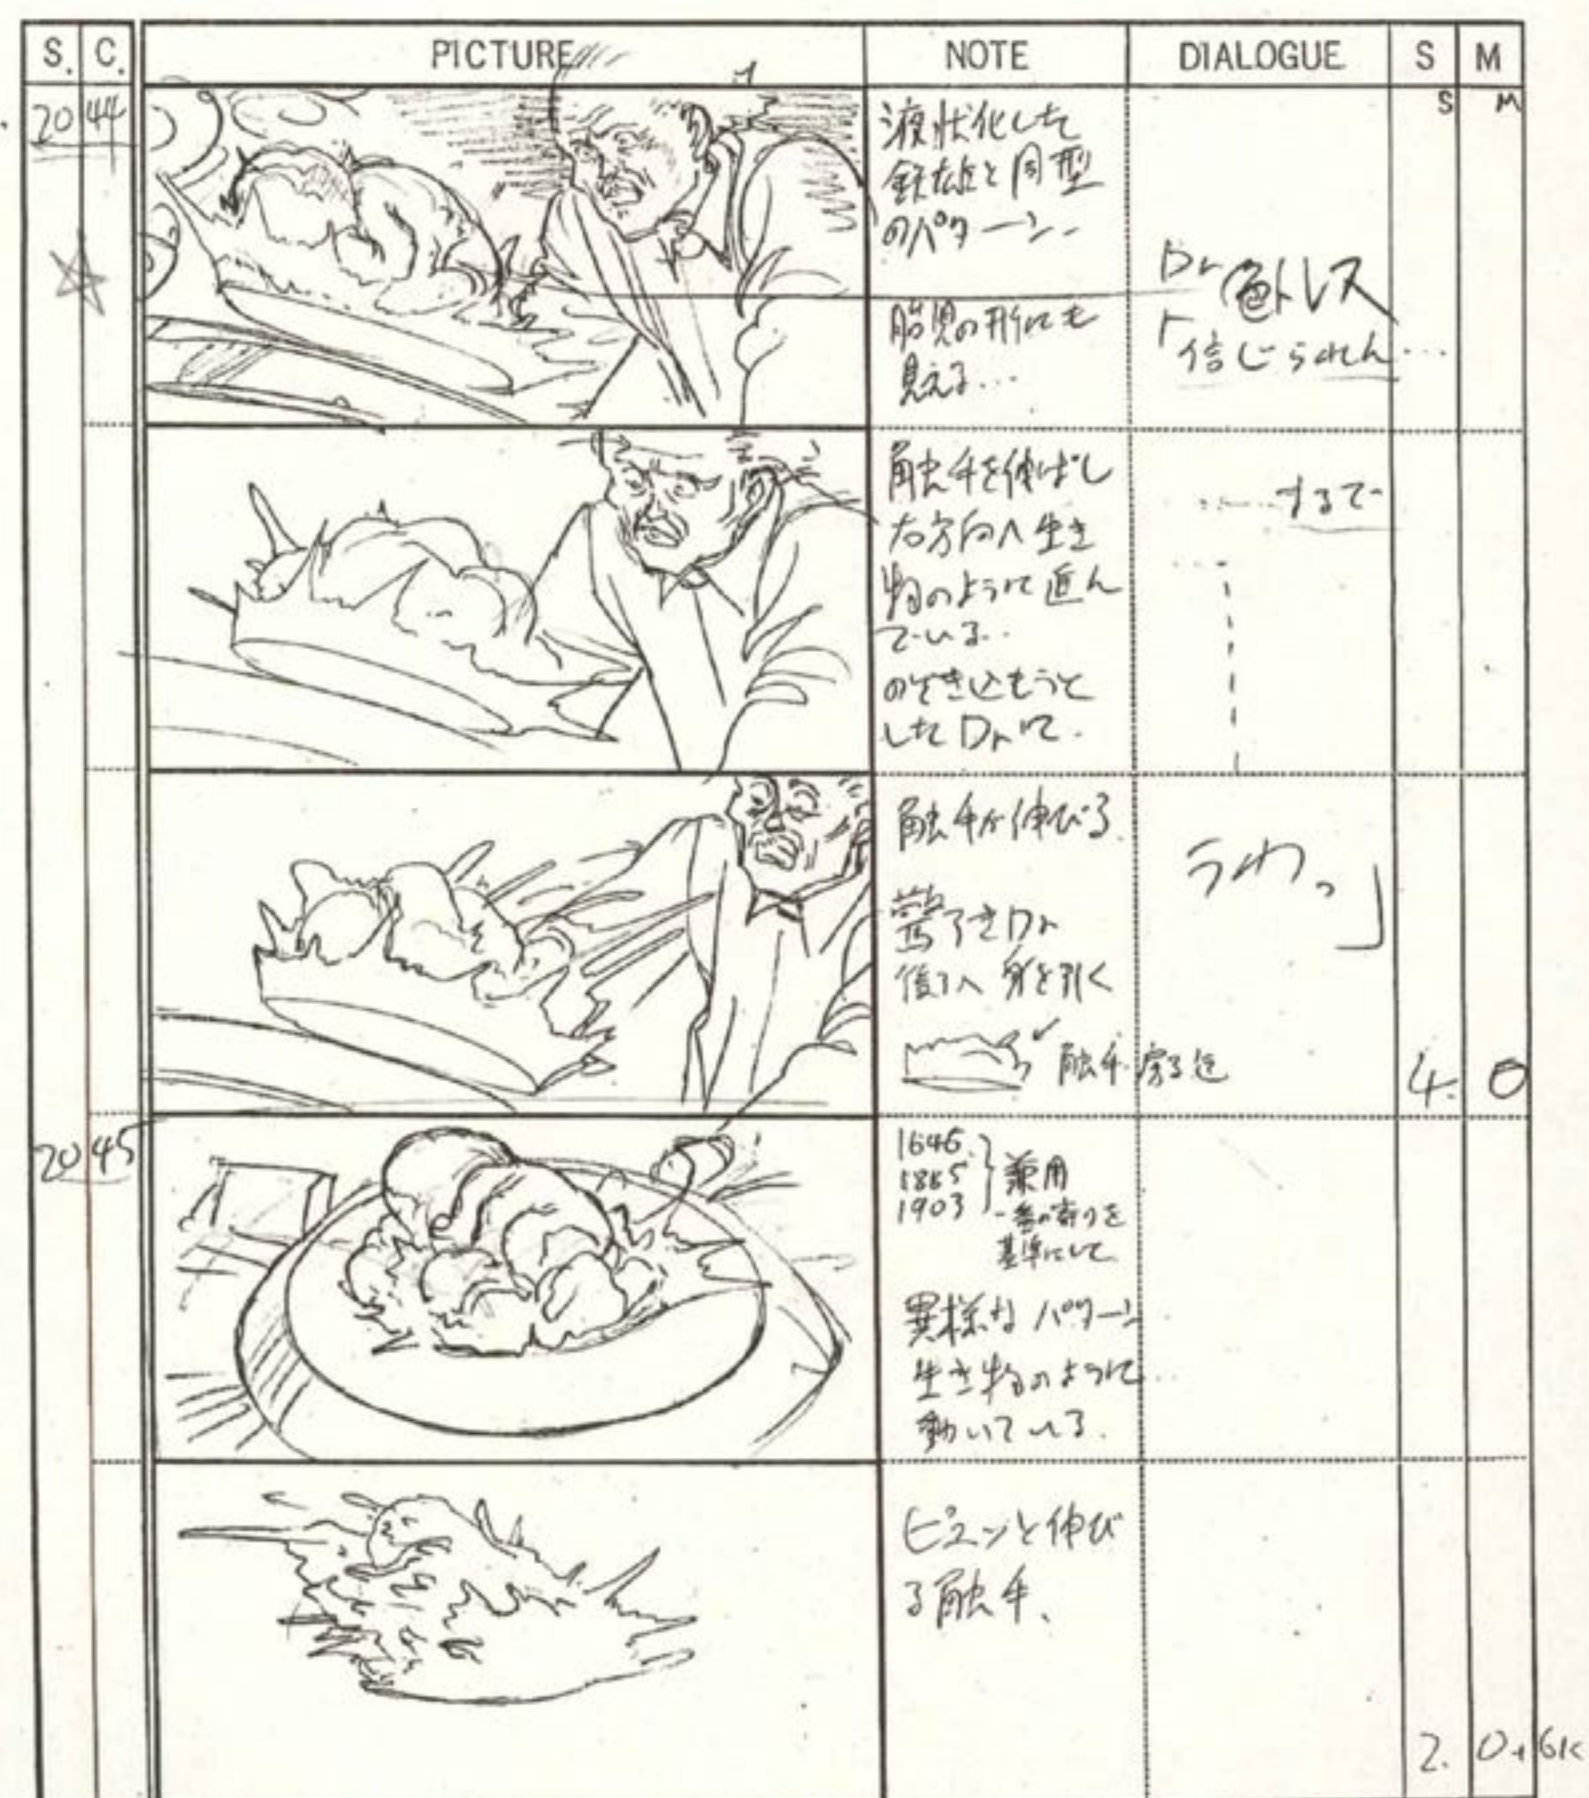 S. C. PICTURE NOTE DIALOGUE S M
S M
20 44
液状化した
鉄雄と同型
のパターン.
胎児の形にも
見える...
Dr
色トレス
「信じられん...
触手を伸ばし
右方向へ生き
物のように進ん
でいる..
のぞき込もうと
した Drに.
......するで
触手が伸びる.
驚きDr
後ろへ身を引く
触手戻る迄
うわっ」
4. 0
20 45
1646
1885
1903
兼用
一番寄りを
基準にして
異様なパターン
生き物のように...
動いている.
ピュンと伸び
る触手、
2. 0+6K